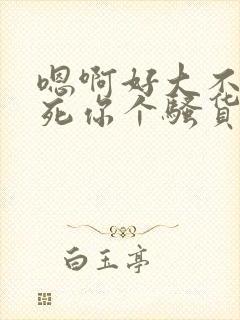 嗯啊好大不
死你个骚货
白玉亭